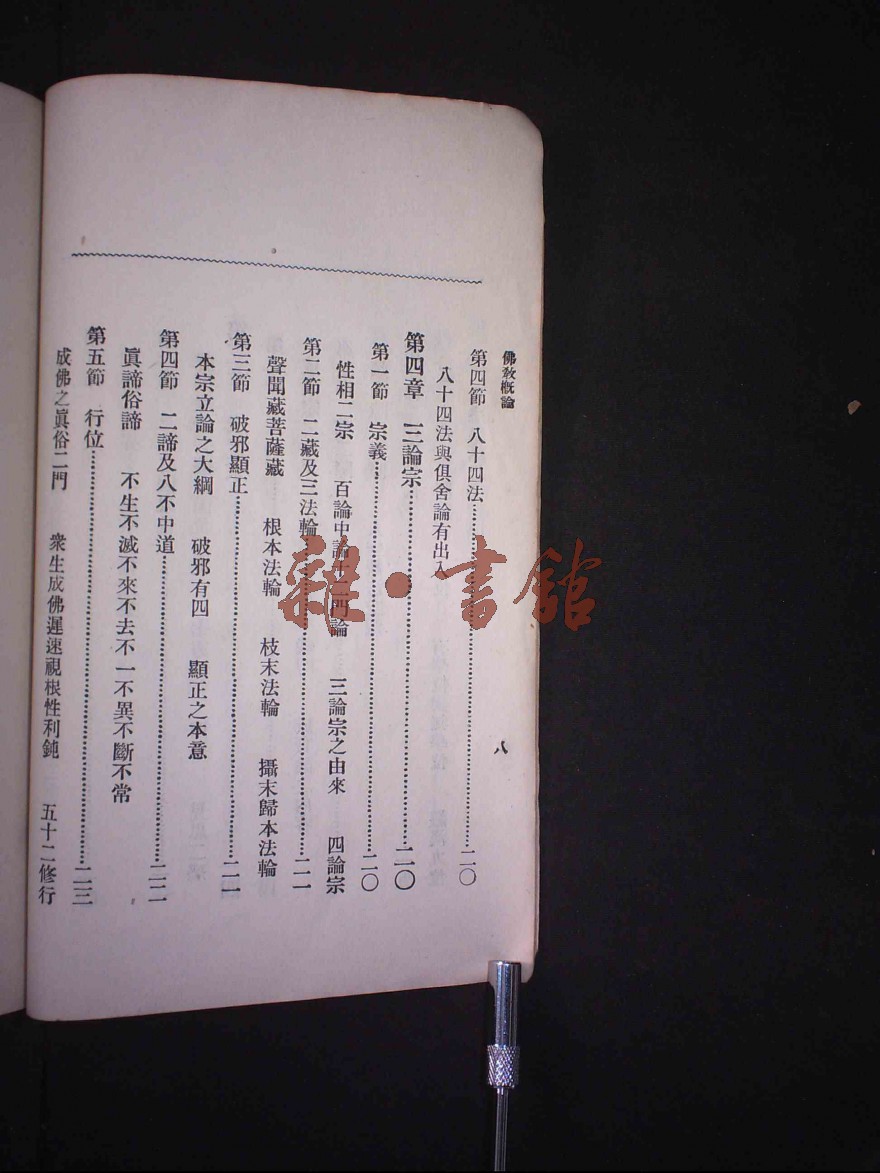 佛敎概論
八
第四節 八十四法……二〇
八十四法與俱舍論有出入
第四章 三論宗……二〇
第一節 宗義……二〇
性相二宗 百論中論十二門論 三論宗之由來 四論宗
第二節 二藏及三法輪……二一
聲聞藏菩薩藏 根本法輪 枝末法輪 攝末歸本法輪
第三節 破邪顯正……二一
本宗立論之大綱 破邪有四 顯正之本意
第四節 二諦及八不中道……二二
眞諦俗諦 不生不滅不來不去不一不異不斷不常
第五節 行位……二三
成佛之眞俗二門 衆生成佛遲速視根性利鈍 五十二修行
雜·書館